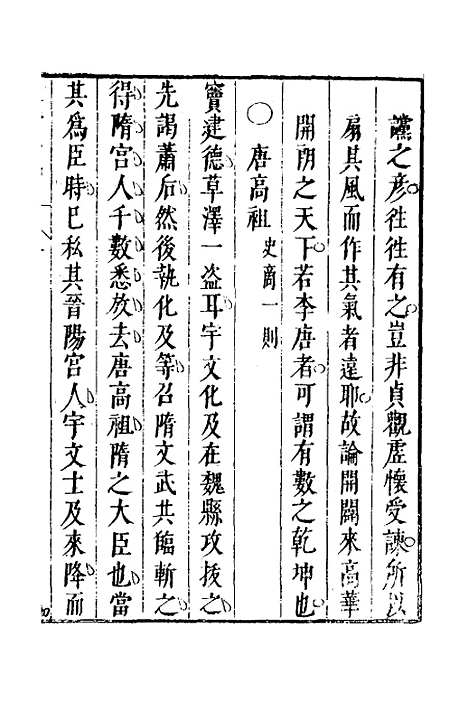 讜之彥往往有之豈非貞觀虛懷受諫所以
扇其風而作其氣者遠耶故論開闢來高華
開朗之天下若李唐者可謂有數之乾坤也
○唐高祖 史商一則
竇建德草澤一盗耳宇文化及在魏縣攻拔之
先謁蕭后然後執化及等召隋文武共臨斬之
得隋宫人千數悉放去唐高祖隋之大臣也當
其爲臣時巳私其晉陽宫人宇文士及來降而